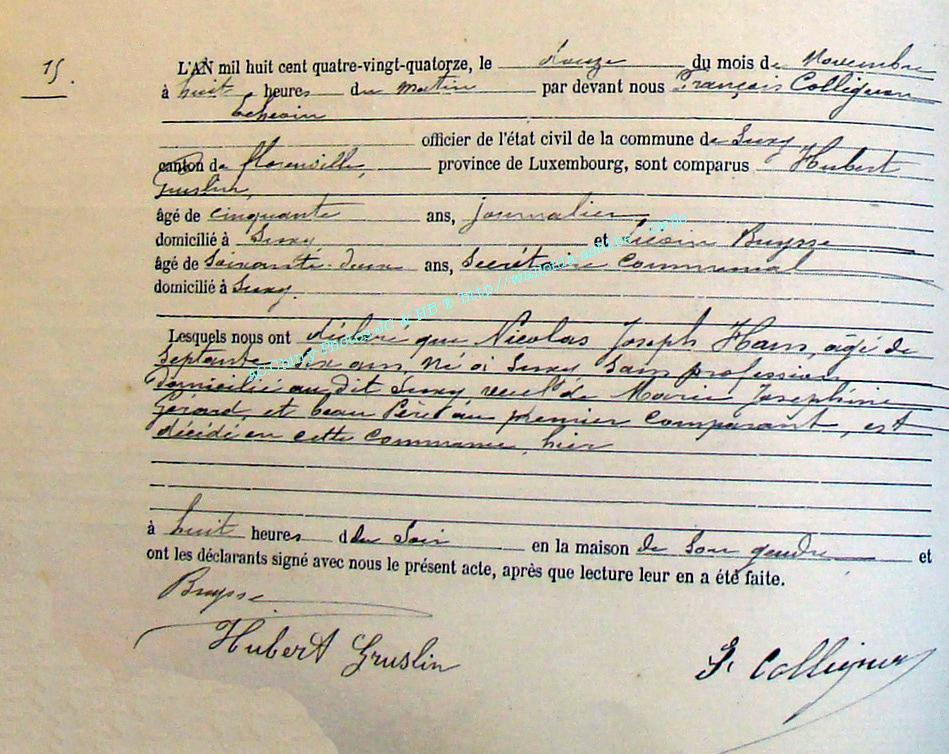 15.
L'AN mil huit cent quatre-vingt-quatorze, le douze du mois de Novembre
à huit heures du matin par devant nous François Collignon
Echevin
officier de l'état civil de la commune de Suxy
canton de florenville, province de Luxembourg, sont comparus Hubert
Gruslin,
âgé de cinquante ans, journalier
domicilié à Suxy, et Buysse
âgé de Soixante-deux ans, Secrétaire Communal
domicilié à Suxy.
Lesquels nous ont déclaré que Nicolas Joseph Hans, âgé de
Septante Six ans, né à Suxy Sans profession
domicilié au dit Suxy veuf de Marie Joséphine
Gérard et beau Père au premier Comparant, est
décédé en cette Commune, hier
à huit heures du Soir en la maison de Son gendre et
ont les déclarants signé avec nous le présent acte, après que lecture leur en a été faite.
Buysse
Hubert Gruslin
F. Collignon